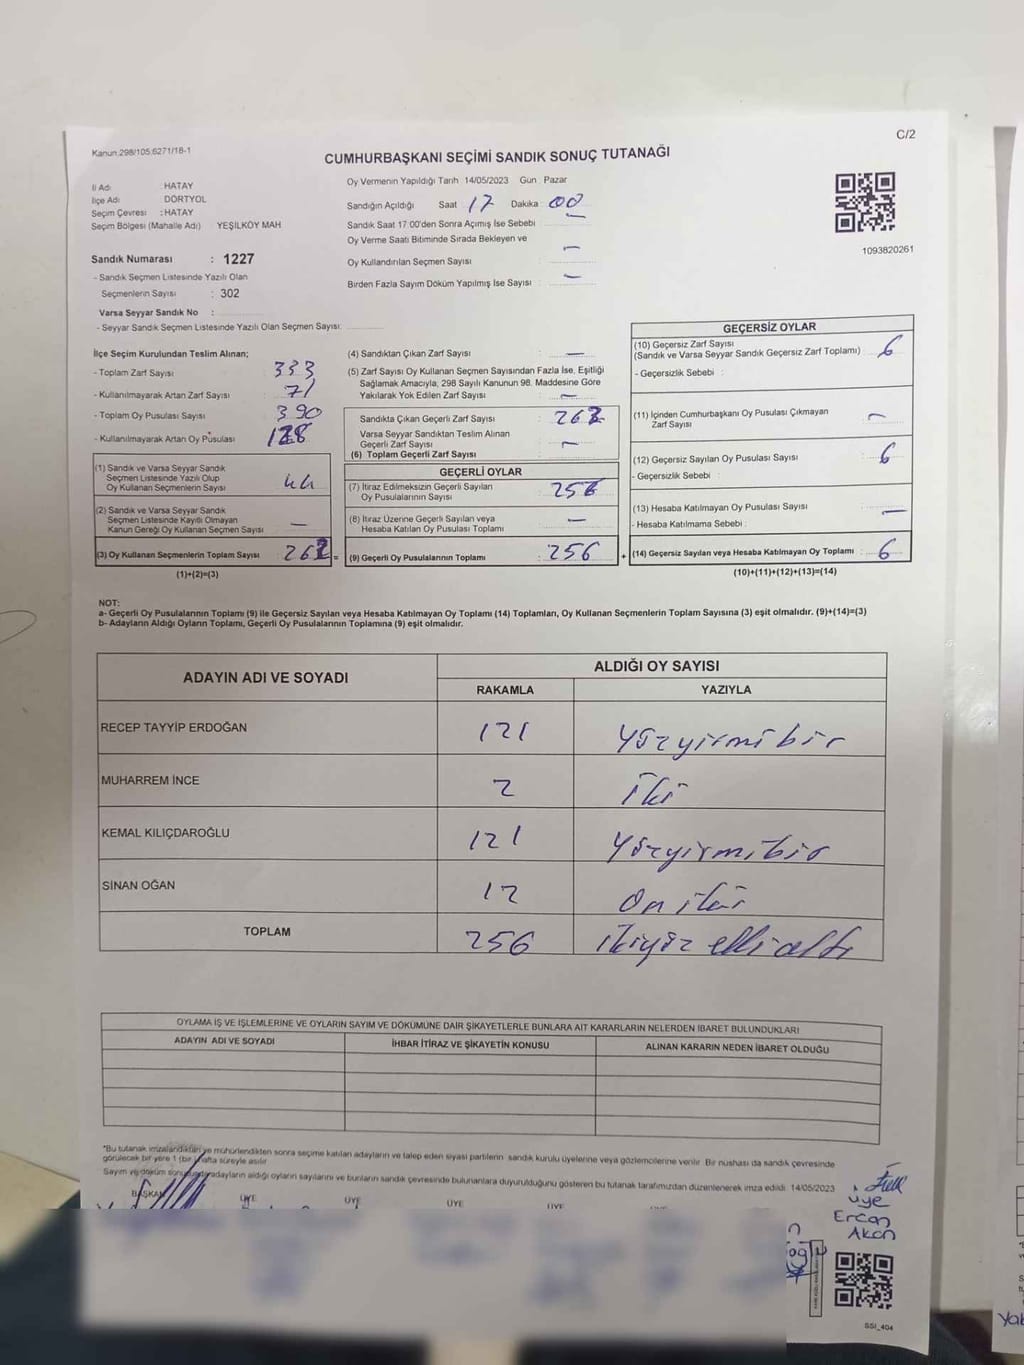 C/2
Kanun:298/105;6271/18-1
CUMHURBAŞKANI SEÇİMİ SANDIK SONUÇ TUTANAĞI
İl Adı : HATAY
İlçe Adı DÖRTYOL
Seçim Çevresi : HATAY
Seçim Bölgesi (Mahalle Adı) YEŞİLKÖY MAH
Sandık Numarası : 1227
- Sandık Seçmen Listesinde Yazılı Olan
Seçmenlerin Sayısı : 302
Varsa Seyyar Sandık No :
- Seyyar Sandık Seçmen Listesinde Yazılı Olan Seçmen Sayısı:
Oy Vermenin Yapıldığı Tarih 14/05/2023 Gün Pazar
Sandığın Açıldığı Saat 17 Dakika : 00
Sandık Saat 17:00'den Sonra Açımış İse Sebebi —
Oy Verme Saati Bitiminde Sırada Bekleyen ve
Oy Kullandırılan Seçmen Sayısı —
Birden Fazla Sayım Döküm Yapılmış İse Sayısı : —
1093820261
İlçe Seçim Kurulundan Teslim Alınan;
- Toplam Zarf Sayısı : 333
- Kullanılmayarak Artan Zarf Sayısı : 71
- Toplam Oy Pusulası Sayısı : 390
- Kullanılmayarak Artan Oy Pusulası : 128
(1) Sandık ve Varsa Seyyar Sandık
Seçmen Listesinde Yazılı Olup
Oy Kullanan Seçmenlerin Sayısı
(2) Sandık ve Varsa Seyyar Sandık
Seçmen Listesinde Kayıtlı Olmayan
Kanun Gereği Oy Kullanan Seçmen Sayısı —
(3) Oy Kullanan Seçmenlerin Toplam Sayısı 262 =
(1)+(2)=(3)
(4) Sandıktan Çıkan Zarf Sayısı : —
(5) Zarf Sayısı Oy Kullanan Seçmen Sayısından Fazla İse, Eşitliği
Sağlamak Amacıyla, 298 Sayılı Kanunun 98. Maddesine Göre
Yakılarak Yok Edilen Zarf Sayısı : —
Sandıkta Çıkan Geçerli Zarf Sayısı : 262
Varsa Seyyar Sandıktan Teslim Alınan
Geçerli Zarf Sayısı : —
(6) Toplam Geçerli Zarf Sayısı :
GEÇERLİ OYLAR
(7) İtiraz Edilmeksizin Geçerli Sayılan
Oy Pusulalarının Sayısı : 256
(8) İtiraz Üzerine Geçerli Sayılan veya
Hesaba Katılan Oy Pusulası Toplamı : —
(9) Geçerli Oy Pusulalarının Toplamı : 256 +
GEÇERSİZ OYLAR
(10) Geçersiz Zarf Sayısı
(Sandık ve Varsa Seyyar Sandık Geçersiz Zarf Toplamı) : 6
- Geçersizlik Sebebi :
(11) İçinden Cumhurbaşkanı Oy Pusulası Çıkmayan
Zarf Sayısı : —
(12) Geçersiz Sayılan Oy Pusulası Sayısı : 6
- Geçersizlik Sebebi :
(13) Hesaba Katılmayan Oy Pusulası Sayısı : —
- Hesaba Katılmama Sebebi :
(14) Geçersiz Sayılan veya Hesaba Katılmayan Oy Toplamı : 6
(10)+(11)+(12)+(13)=(14)
NOT:
a- Geçerli Oy Pusulalarının Toplamı (9) ile Geçersiz Sayılan veya Hesaba Katılmayan Oy Toplamı (14) Toplamları, Oy Kullanan Seçmenlerin Toplam Sayısına (3) eşit olmalıdır. (9)+(14)=(3)
b- Adayların Aldığı Oyların Toplamı, Geçerli Oy Pusulalarının Toplamına (9) eşit olmalıdır.
ADAYIN ADI VE SOYADI
ALDIĞI OY SAYISI
RAKAMLA YAZIYLA
RECEP TAYYİP ERDOĞAN 121 Yüzyirmibir
MUHARREM İNCE 2 İki
KEMAL KILIÇDAROĞLU 121 Yüzyirmibir
SİNAN OĞAN 12 On iki
TOPLAM 256 İkiyüz elli altı
OYLAMA İŞ VE İŞLEMLERİNE VE OYLARIN SAYIM VE DÖKÜMÜNE DAİR ŞİKAYETLERLE BUNLARA AİT KARARLARIN NELERDEN İBARET BULUNDUKLARI
ADAYIN ADI VE SOYADI İHBAR İTİRAZ VE ŞİKAYETİN KONUSU ALINAN KARARIN NEDEN İBARET OLDUĞU
*Bu tutanak imzalandıktan ve mühürlendikten sonra seçime katılan adayların ve talep eden siyasi partilerin sandık kurulu üyelerine veya gözlemcilerine verilir. Bir nüshası da sandık çevresinde
görülecek bir yere 1 (bir) hafta süreyle asılır.
Sayım ve döküm sonucunda adayların aldığı oyların sayılarını ve bunların sandık çevresinde bulunanlara duyurulduğunu gösteren bu tutanak tarafımızdan düzenlenerek imza edildi. 14/05/2023
BAŞKAN ÜYE ÜYE ÜYE ÜYE
Üye
Ercan
Akan
SSI_404